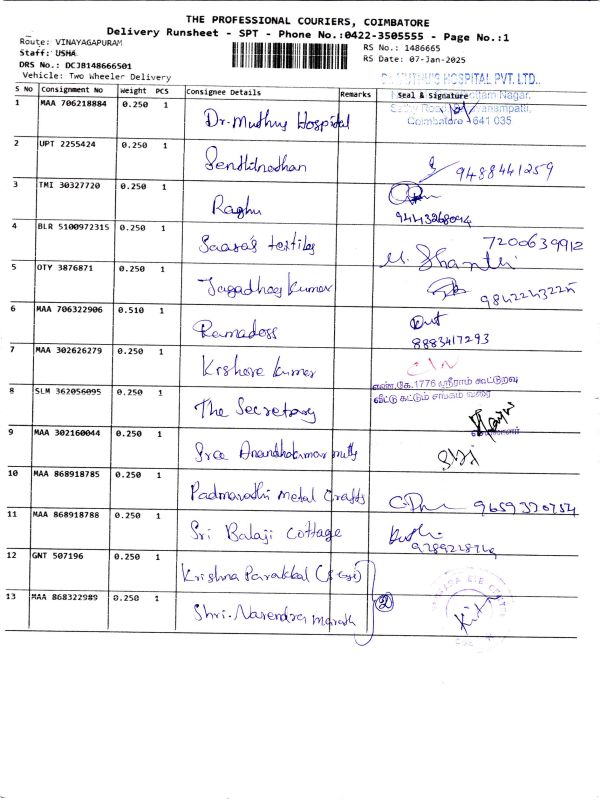 THE PROFESSIONAL COURIERS, COIMBATORE
Delivery Runsheet - SPT - Phone No.:0422-3505555 - Page No.:1
Route: VINAYAGAPURAM
RS No.: 1486665
Staff: USHA
RS Date: 07-Jan-2025
DRS No.: DCJB148666501
Vehicle: Two Wheeler Delivery
HOSPITAL PVT. LTD.,
S NO Consignment No Weight PCS Consignee Details Remarks Seal & Signature
Nagar,
Coimbatore 641 035
1 MAA 706218884 0.250 1 Dr. Muthus Hospital
2 UPT 2255424 0.250 1 9488441259
3 TMI 30327720 0.250 1 Raghu
4 BLR 5100972315 0.250 1 7200639912
M. Shanthi
5 OTY 3876871 0.250 1 Kumar
6 MAA 706322906 0.510 1 Ramadoss
8883417293
7 MAA 302626279 0.250 1 Kishore Kumar
எண்.கே.1776 ஸ்ரீராம் கூட்டுறவு
வீட்டு கட்டும் சங்கம் வரை
8 SLM 362056095 0.250 1 The Secretary
9 MAA 302160044 0.250 1 Sree
10 MAA 868918785 0.250 1 Padmavathi Metal Crafts 9659320754
11 MAA 868918788 0.250 1 Sri Balaji Cottage
12 GNT 507196 0.250 1 Krishna Parakkal
13 MAA 868322989 0.250 1 Shri. Narendra
2